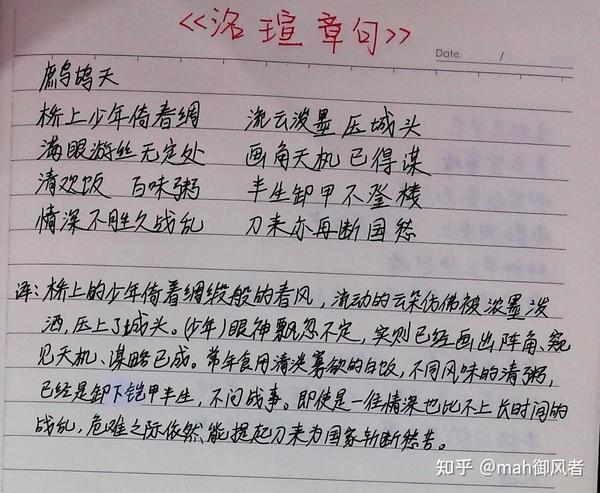 <<洛瑄章句>>
Date. /
鹧鸪天
桥上少年倚春绸 流云泼墨压城头
满眼游丝无定处 画角天机已得谋
清欢饭 百味粥 半生卸甲不登楼
情深不胜久战乱 刀来亦再断国愁
译：桥上的少年倚着绸缎般的春风，流动的云朵仿佛被浓墨泼
洒，压上了城头。(少年)眼神飘忽不定，实则已经画出阵角、窥
见天机、谋略已成。常年食用清淡寡欲的白饭，不同风味的清粥，
已经是卸下铠甲半生，不问战事。即使是一往情深也比不上长时间的
战乱，危难之际依然能提起刀来为国家斩断愁苦。
知乎 @mah御风者